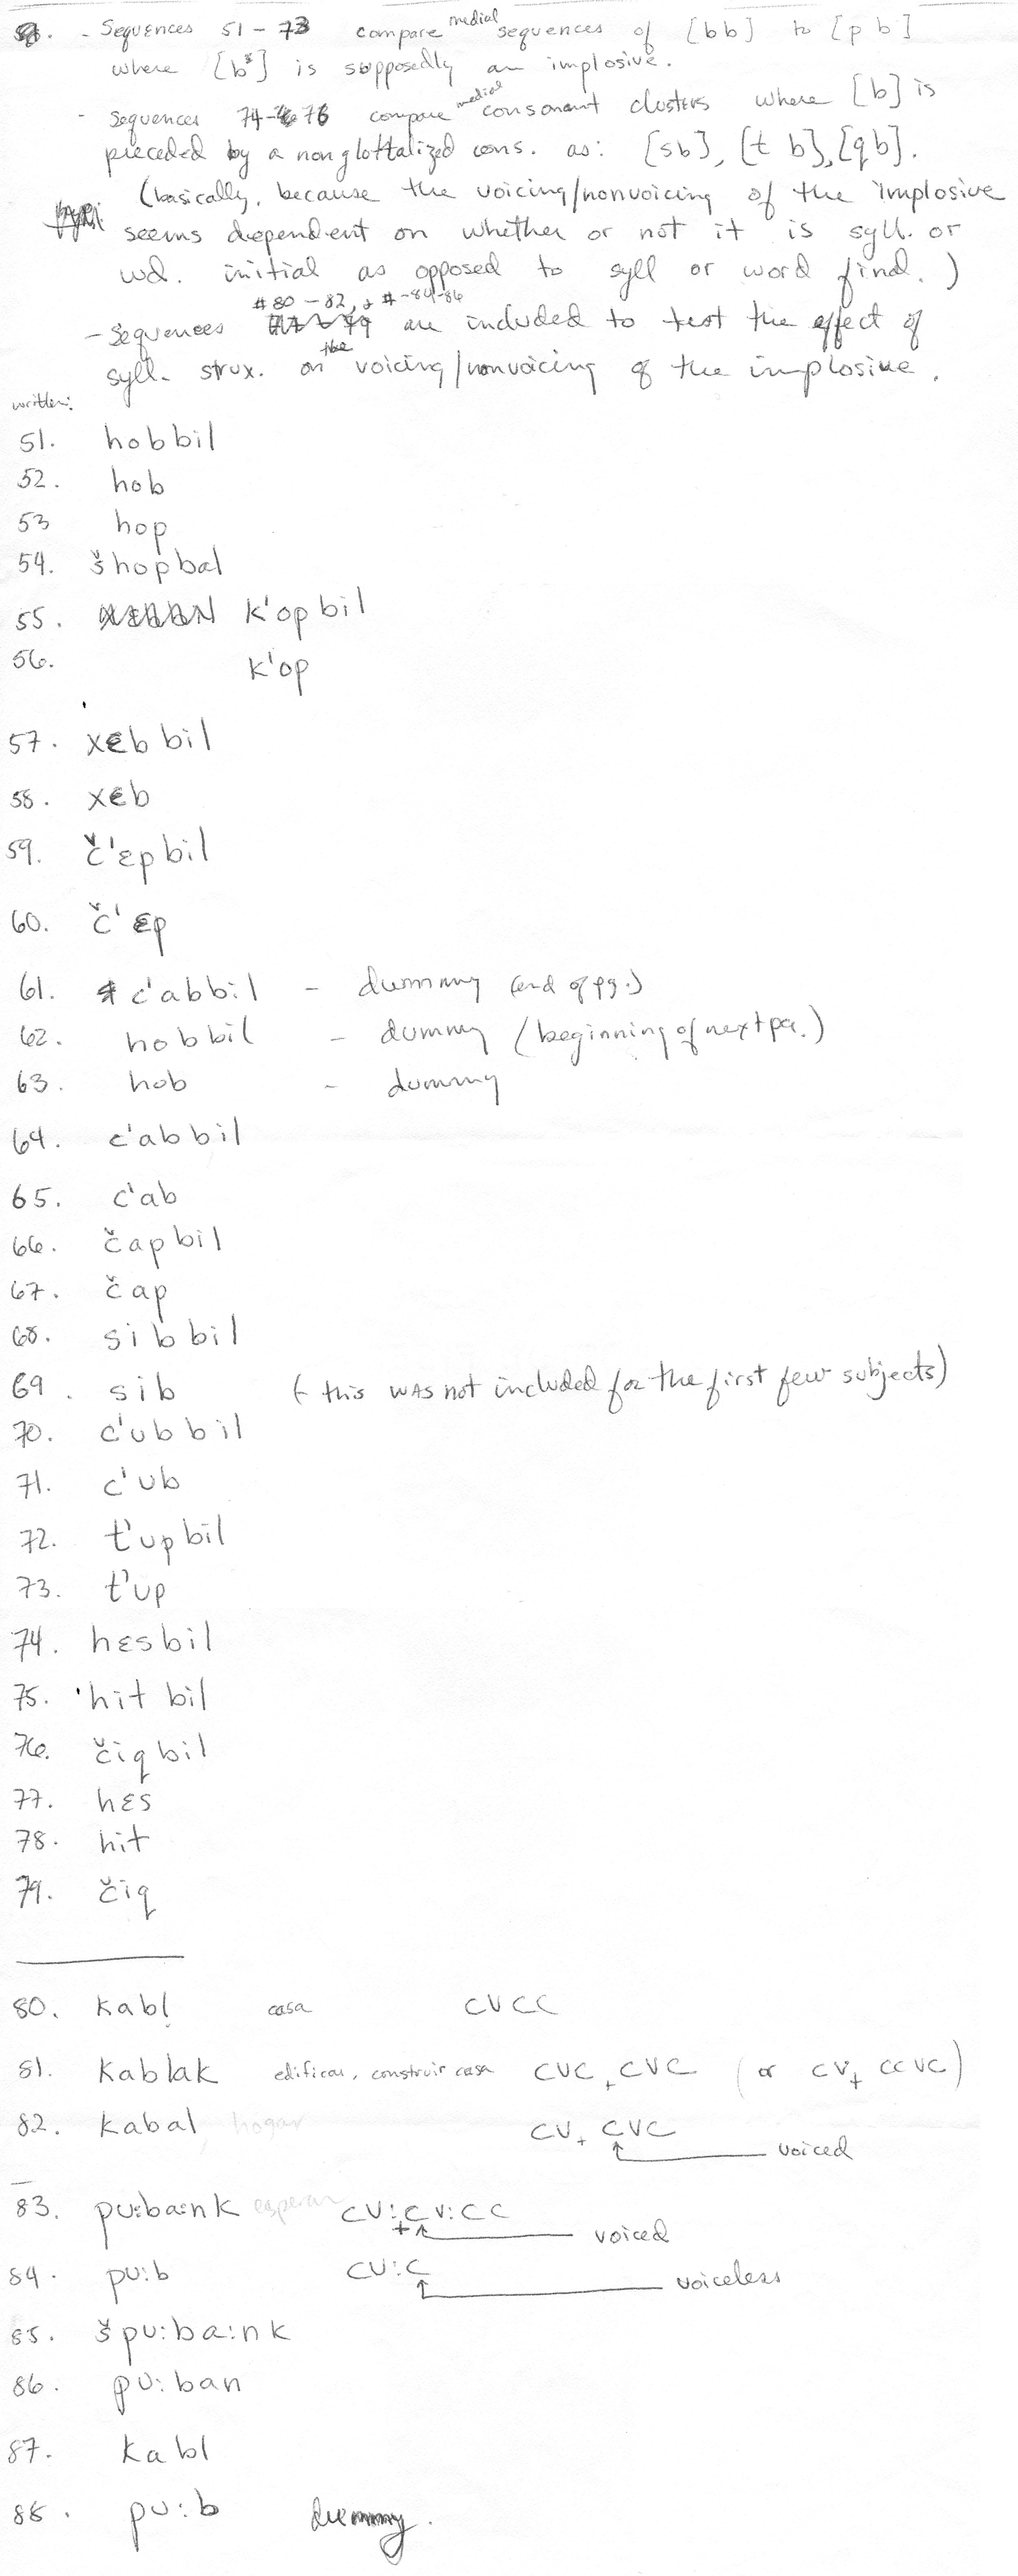 - Sequences 51 - 73 compare medial sequences of [bb] to [pb]
where [b'] is supposedly an implosive.
- Sequences 74-76 compare medial consonant clusters where [b] is
preceded by a nonglottalized cons. as: [sb], [t b], [qb].
(basically, because the voicing/nonvoicing of the implosive
seems dependent on whether or not it is syll. or
wd. initial as opposed to syll or word final.)
- Sequences #80 - 82, + #-84-86 are included to test the effect of
syll. strux. on the voicing/nonvoicing of the implosive.
written:
51. hobbil
52. hob
53 hop
54. šhopbal
55. k'opbil
56. k'op
57. xɛbbil
58. xɛb
59. č'ɛpbil
60. č'ɛp
61. c'abbil - dummy (end of pg.)
62. hobbil - dummy (beginning of next pg.)
63. hob - dummy
64. c'abbil
65. c'ab
66. čapbil
67. čap
68. sibbil
69. sib (- this was not included for the first few subjects)
70. c'ubbil
71. c'ub
72. t'upbil
73. t'up
74. hɛsbil
75. hitbil
76. čiqbil
77. hɛs
78. hit
79. čiq
80. kabl casa CVCC
81. kablak edificar, construir casa CVC + CVC (or CV + CCVC)
82. kabal, hogar CV + CVC voiced
83. pu:ba:nk esperar CV: + CV:CC voiced
84. pu:b CV:C voiceless
85. špu:ba:nk
86. pu:ban
87. kabl
88. pu:b dummy.